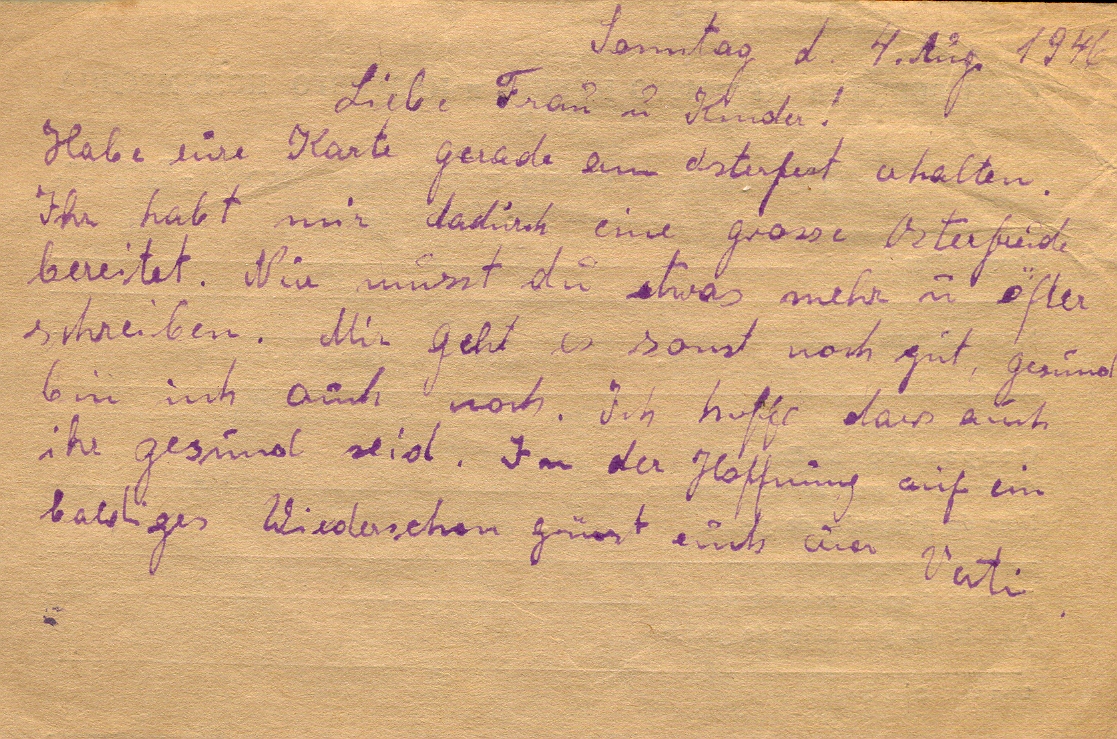 Sonntag d. 4. Aug. 1946
Liebe Frau u Kinder!
Habe eure Karte gerade am Osterfest erhalten.
Ihr habt mir dadurch eine grosse Osterfreude
bereitet. Nur müsst du etwas mehr u öfter
schreiben. Mir geht es sonst noch gut, gesund
bin ich auch noch. Ich hoffe dass auch
ihr gesund seid. In der Hoffnung auf ein
baldiges Wiedersehen grüsst euch euer